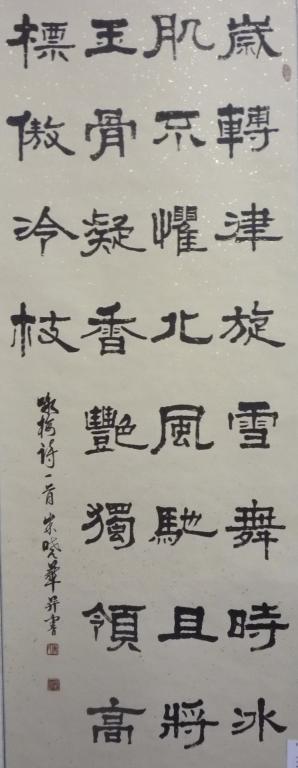 歲轉律旋雪舞時冰
肌不懼北風馳且將
玉骨凝香艷獨領高
標傲冷枝
咏梅詩一首朱曉華并書